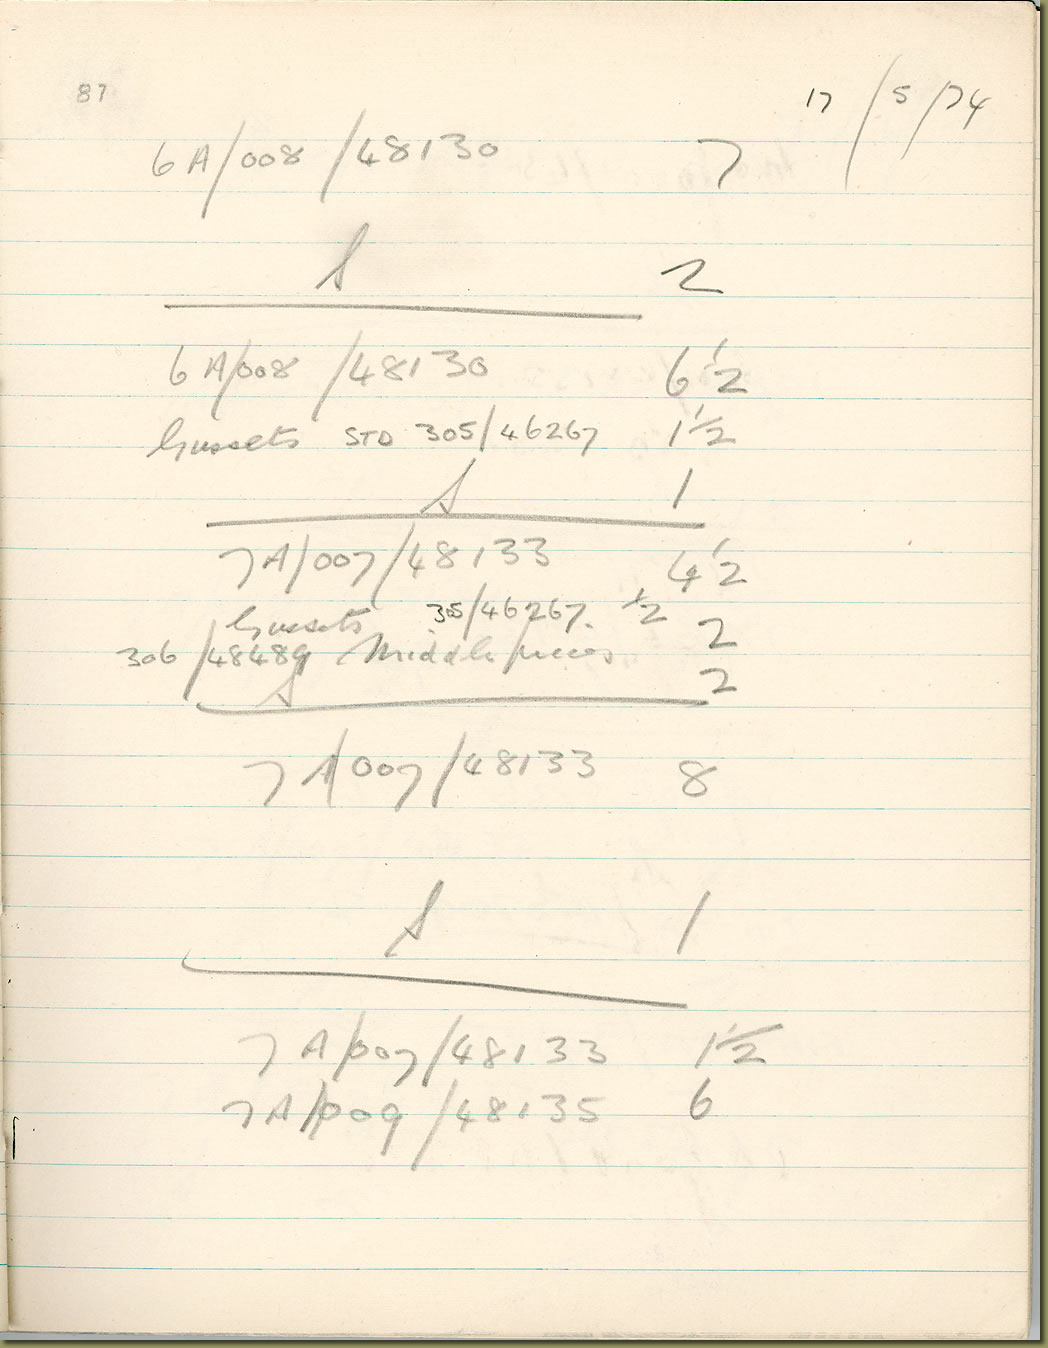 87 17/5/74
6A/008/48130 7
S 2
6A/008/48130 6 1/2
Gussets STD 305/46267 1 1/2
S 1
7A/007/48133 4 1/2
Gussets 305/46267. 1/2 2
306/48489 Middle pieces
S 2
7A/007/48133 8
S 1
7A/007/48133 1 1/2
7A/009/48135 6